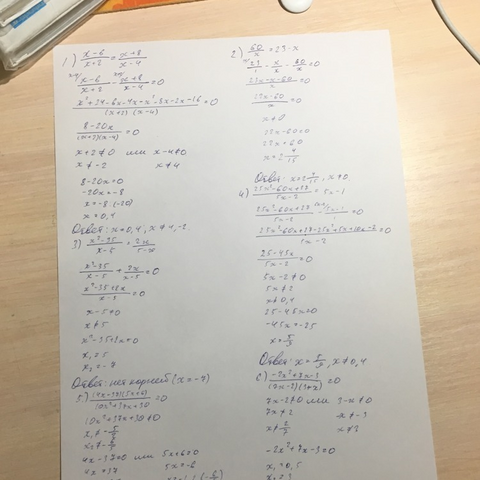 1) x-6/x+2 = x+8/x-4
x-6/x+2 - x+8/x-4 = 0
x²+24-6x-4x-x²-8x-2x-16/(x+2)(x-4) = 0
8-20x/(x+2)(x-4) = 0
x+2≠0 или x-4≠0
x≠-2 x≠4
8-20x=0
-20x=-8
x=-8:(-20)
x=0,4
Ответ: x=0,4; x≠4,-2
3) x²-35/x-5 = 2x/5-x
x²-35/x-5 + 2x/x-5 = 0
x²-35+2x/x-5 = 0
x-5≠0
x≠5
x²-35+2x=0
x₁=5
x₂=-7
Ответ: нет корней (x=-7)
5.)
10x²+37x+30 =0
10x²+37x+30≠0
4x-37=0 или 5x+6=0
4x=37 5x=-6
2) 60/x = 23-x
23/1 - x/x - 60/x = 0
23x-60/x = 0
x≠0
23x-60=0
23x=60
Ответ: x≠0
4) 25x²-60x+27/5x-2 = 5x-1
25x²-60x+27/5x-2 - 5x-1 = 0
25x²-60x+27-25x²+5x+10x-2/5x-2 = 0
25-45x/5x-2 = 0
5x-2≠0
5x≠2
x≠0,4
25-45x=0
-45x=-25
x=5/9
Ответ: x=5/9, x≠0,4
6) -2x²+7x-3/(7x-2)(3-x) = 0
7x-2≠0 или 3-x≠0
7x≠2 x≠-3
x≠2/7 x≠3
-2x²+7x-3=0
x₁=0,5
x₂=3